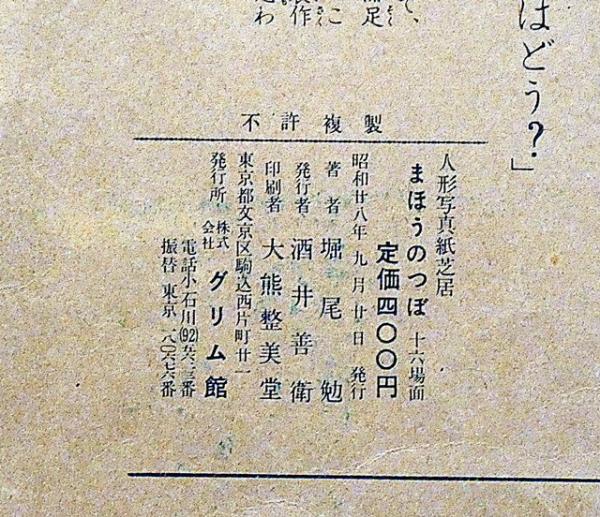 はどう？」
て、
不許複製
人形写真紙芝居
まほうのつぼ 十六場面
定価四〇〇円
昭和廿八年九月廿日 発行
著者 堀尾勉
発行者 酒井善衛
印刷者 大熊整美堂
東京都文京区駒込西片町廿一
発行所 株式会社 グリム館
電話小石川(92)
振替 東京